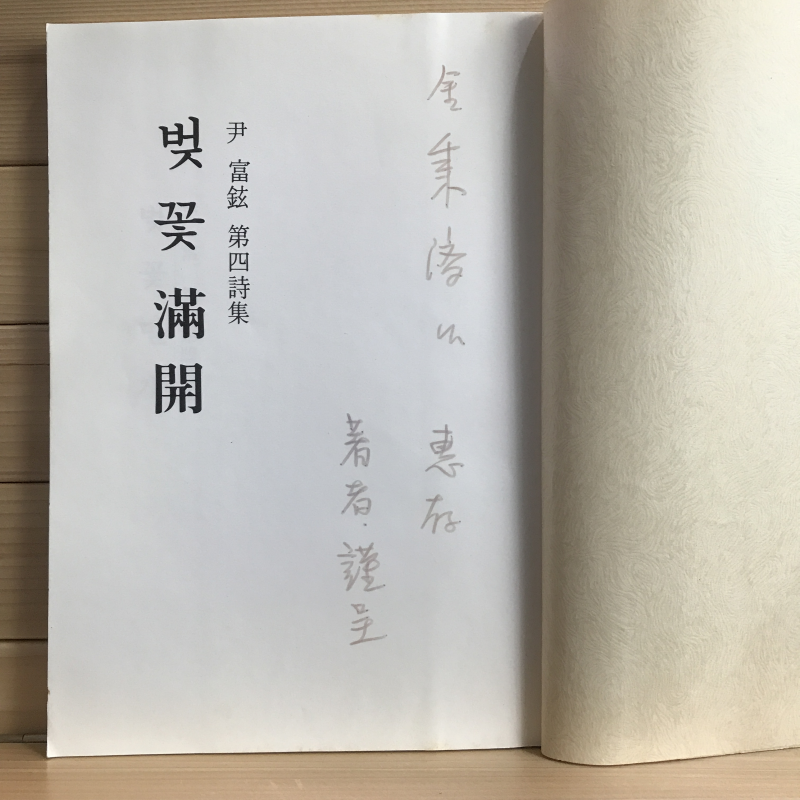 金秉濟仁 惠存
著者·謹呈
尹 富鉉 第四詩集
벚꽃 滿開